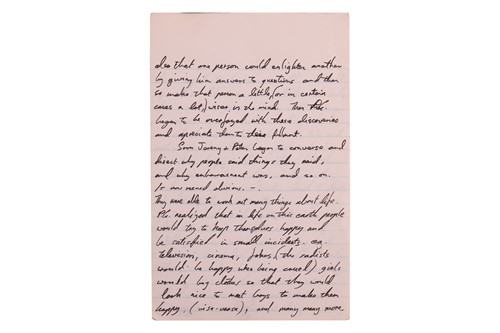 also that one person could enlighten another
by giving him answers to questions and then
so make that person a little, (or in certain
cases a lot,) wiser, in the mind. Then Pete.
began to be overjoyed with these discoveries
and apreciate them to their fullount.
Soon Jonny & Peter began to converse and
disect why people said things they said,
and why enbarrasment was, and so on.
It now seemed obvious. -.
They were able to work out many things about life.
Pete. realized that in life on this earth people
would try to keep themselves happy and
be satisfied in small incidents. eg.
television, cinema, Jokes, (the sadists
would be happy when being cruel) girls
would buy clothes so that they would
look nice to meet boys to make them
happy, (visa-versa), and many many more